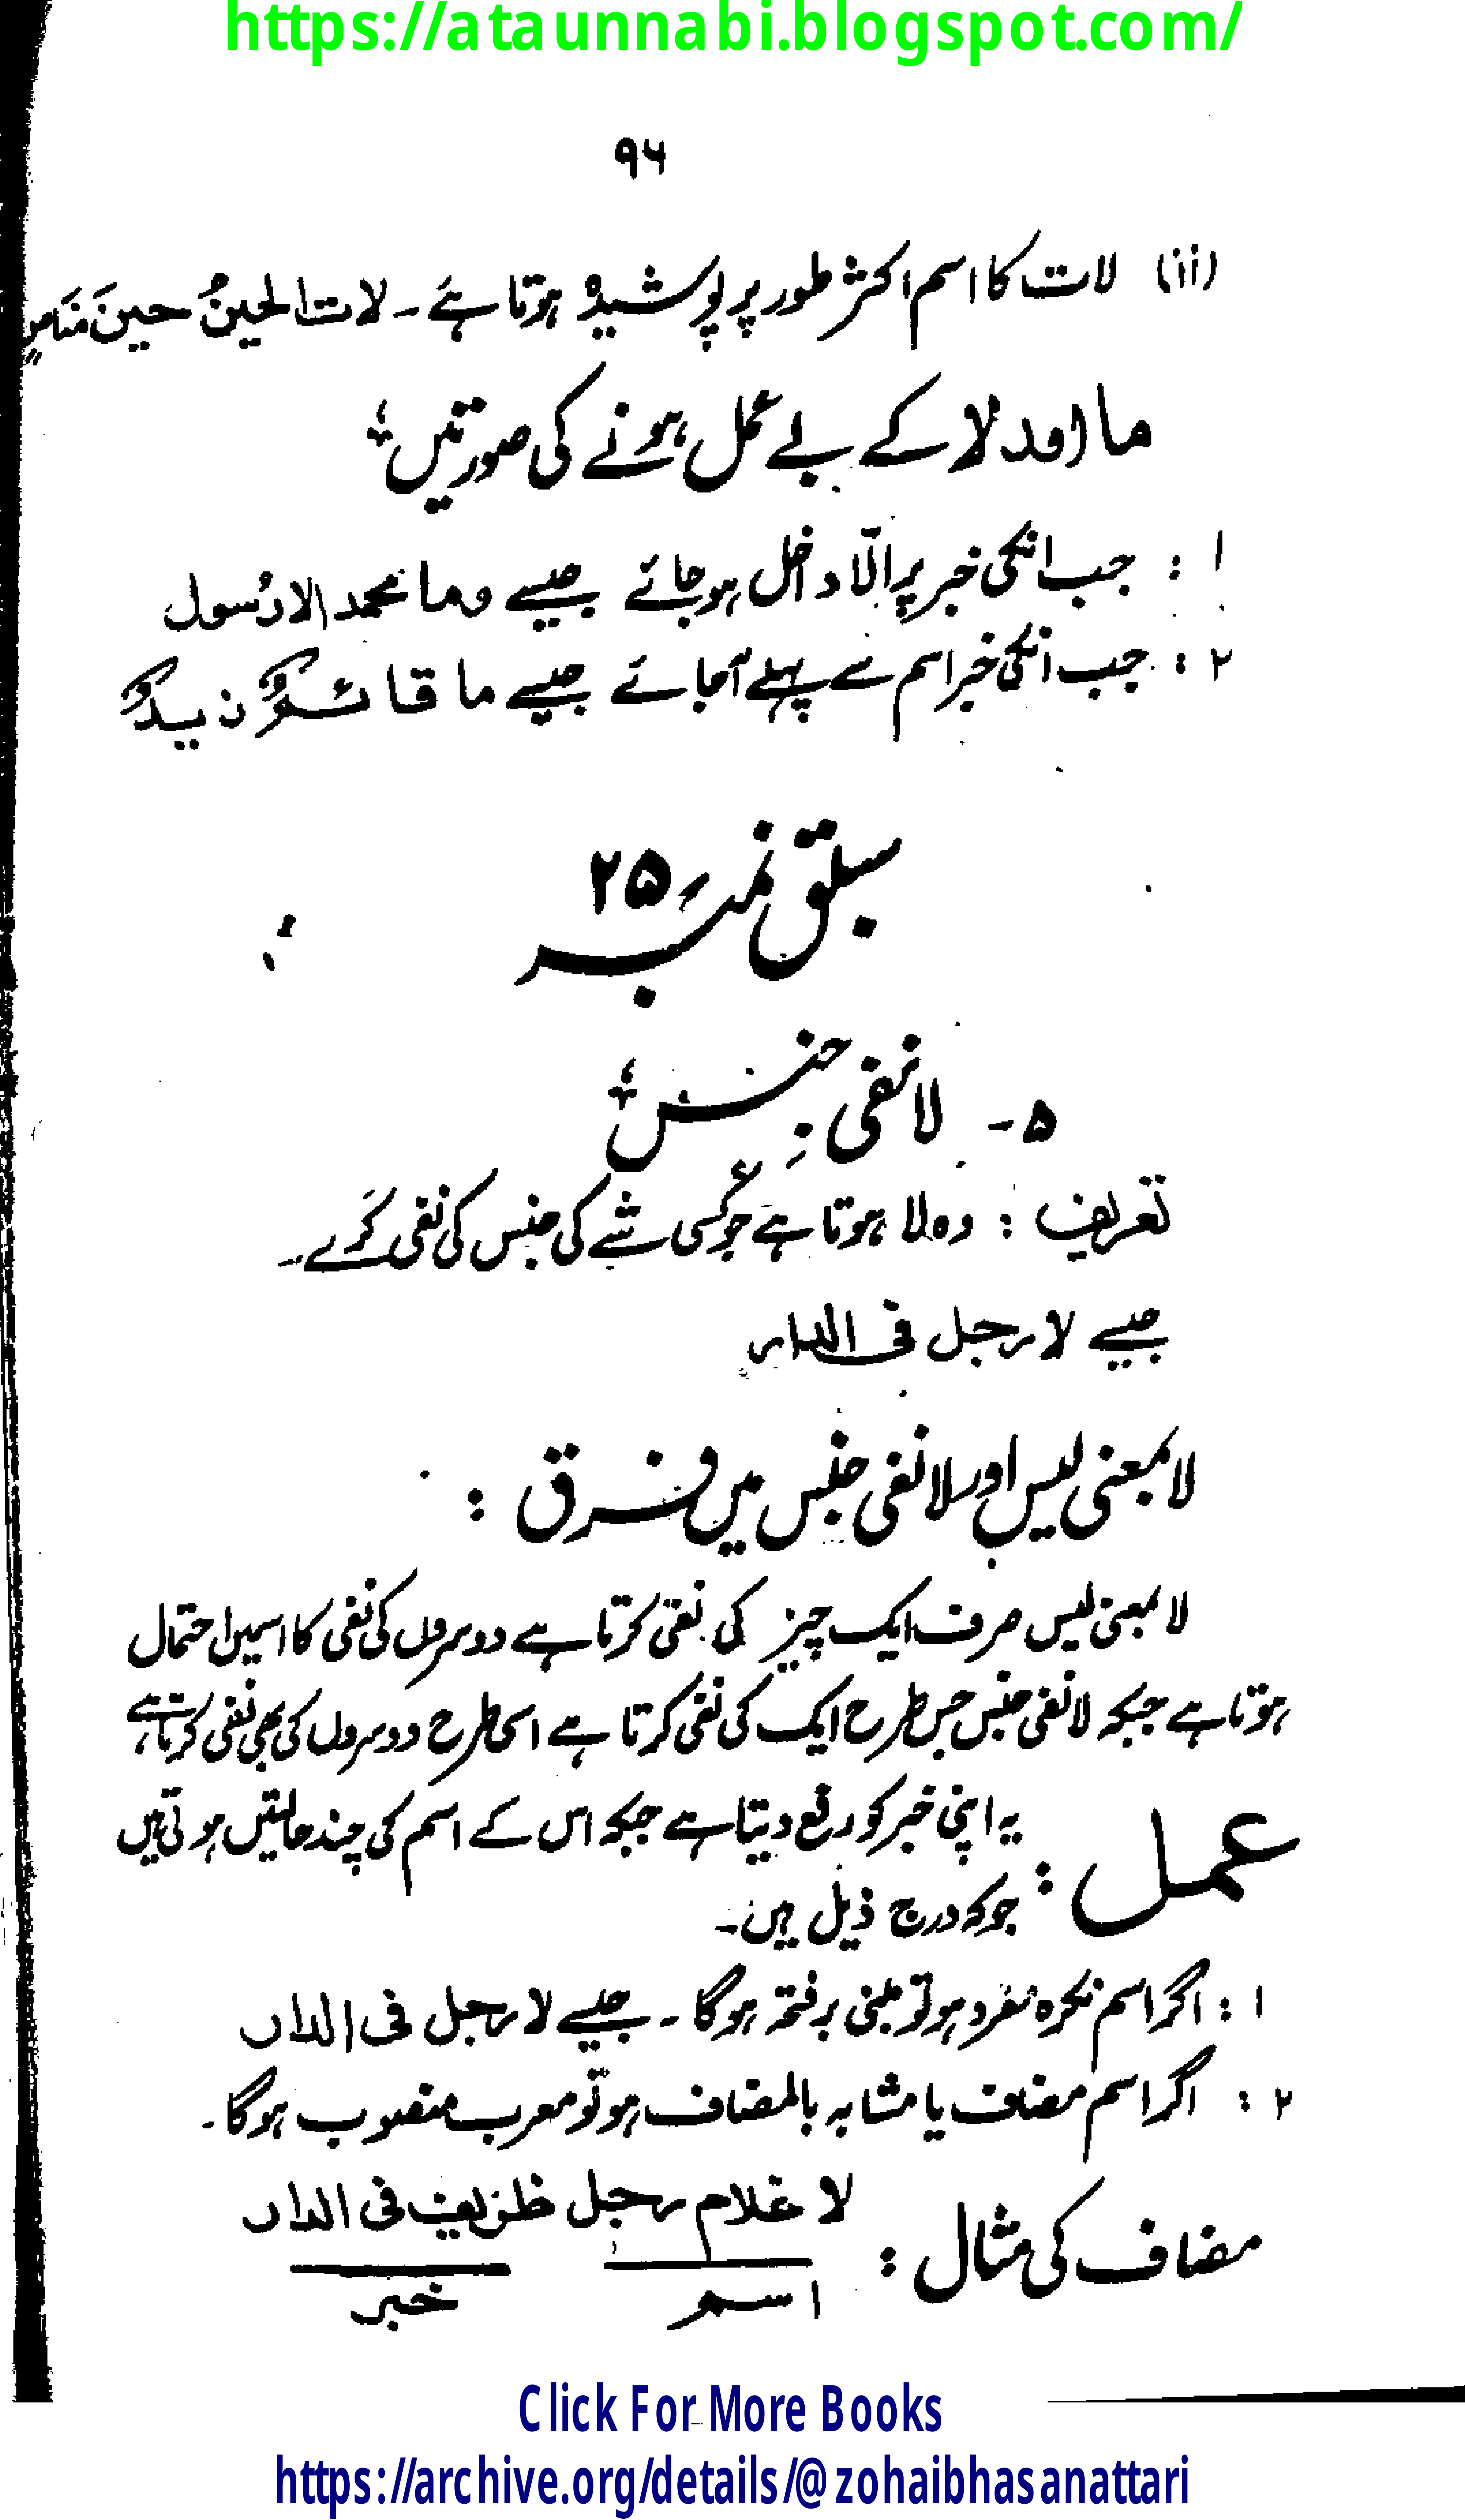 https://ataunnabi.blogspot.com/
۹۶
(ii) لات کا اسم اکثر طور پر پوشیدہ ہوتا ہے ۔ لات الحینُ حینَ مَنَاصٍ
ما اور لا کے بے عمل ہونے کی صورتیں :
۱ : جب انکی خبر پر الّا داخل ہو جائے جیسے وما محمد الا رسول
۲ : جب انکی خبر اسم سے پہلے آجائے جیسے ما قائمٌ زیدٌ
سبق نمبر ۲۵
۵ ۔ لا نفی جنس :
تعریف : وہ لا ہوتا ہے جو کسی شے کی جنس کی نفی کرے ۔
جیسے لا رجل فی الدار
لا بمعنی لیس اور لا نفی جنس میں فرق :
لا بمعنی لیس صرف ایک چیز کی نفی کرتا ہے دوسروں کی نفی کا اسمیں احتمال
ہوتا ہے جبکہ لا نفی جنس جس طرح ایک کی نفی کرتا ہے اسی طرح دوسروں کی بھی نفی کرتا ہے
عمل : یہ اپنی خبر کو رفع دیتا ہے جبکہ اس کے اسم کی چند حالتیں ہوتی ہیں
جو کہ درج ذیل ہیں ۔
۱ : اگر اسم نکرہ مفرد ہو تو مبنی بر فتحہ ہوگا ۔ جیسے لا رجل فی الدار
۲ : اگر اسم مضاف یا مشابہ بالمضاف ہو تو معرب منصوب ہوگا ۔
مضاف کی مثال : لا غلام رجل ظریف فی الدار
اسم خبر
Click For More Books
https://archive.org/details/@zohaibhasanattari